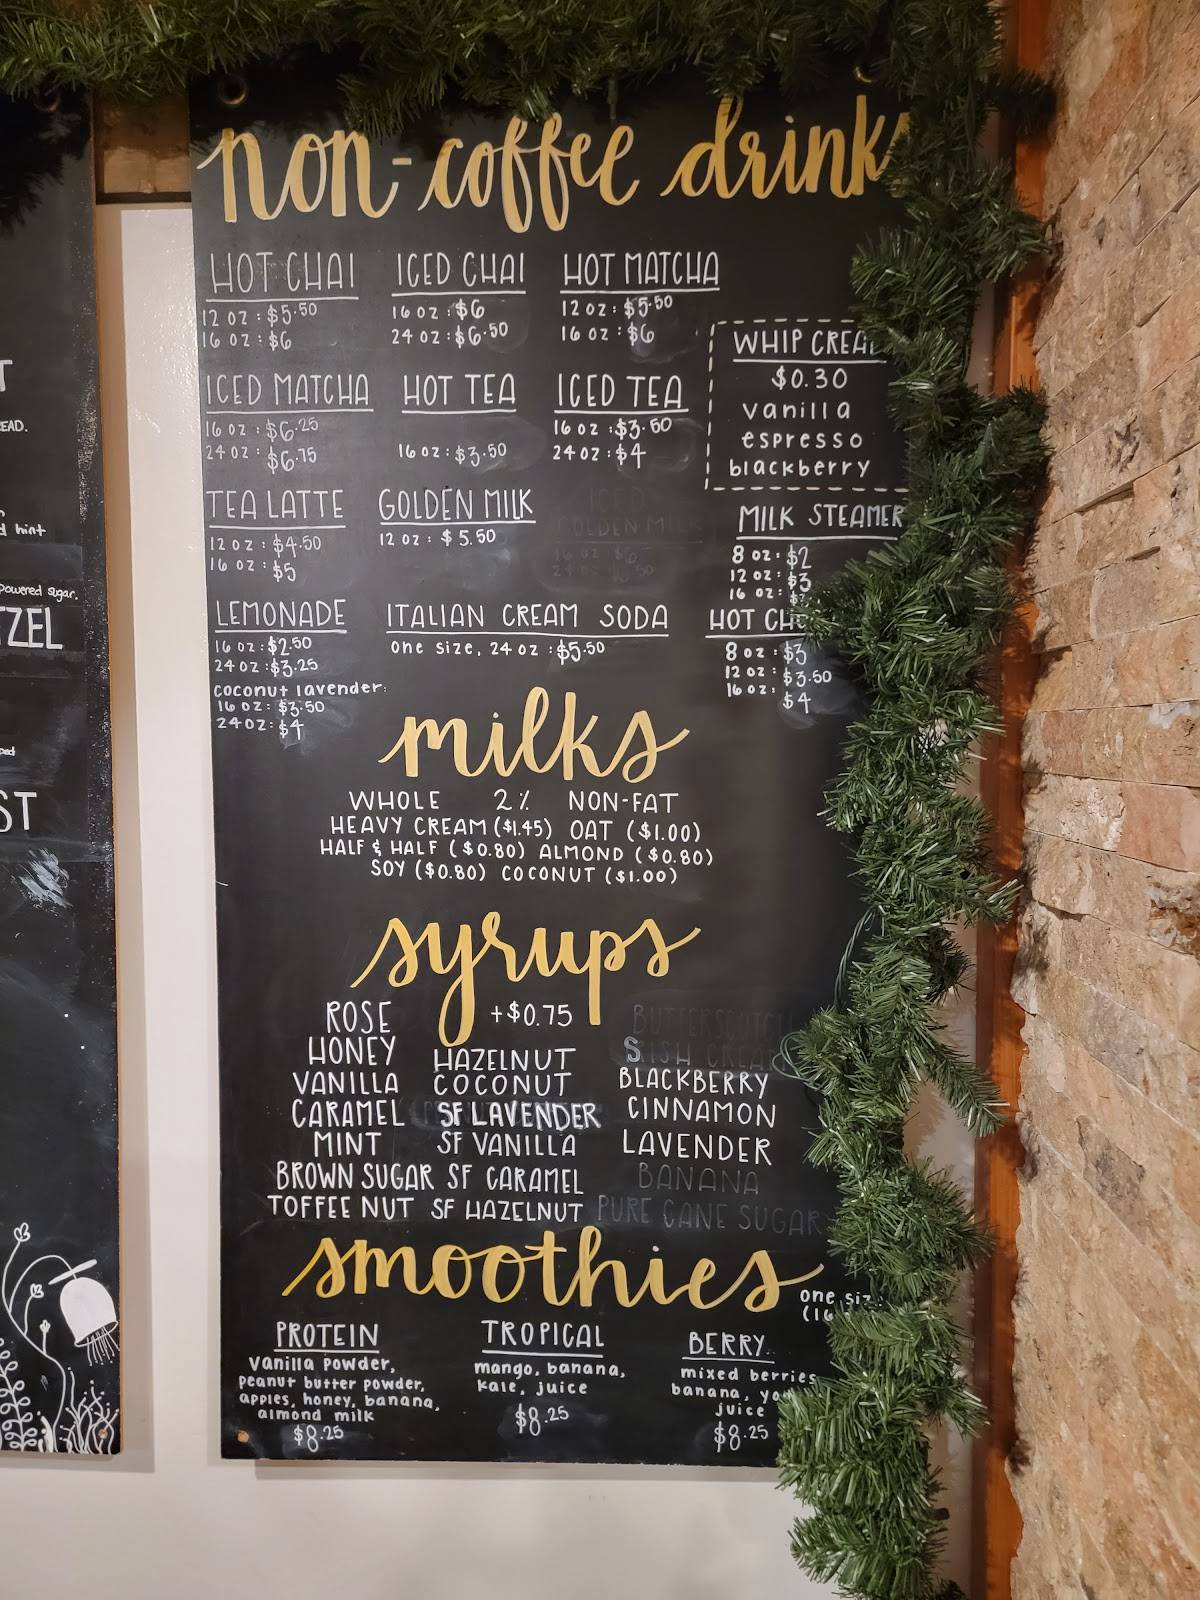 non-coffee drinks
HOT CHAI
12 oz : $5.50
16 oz : $6
ICED CHAI
16 oz : $6
24 oz : $6.50
HOT MATCHA
12 oz : $5.50
16 oz : $6
WHIP CREA
$0.30
vanilla
espresso
blackberry
ICED MATCHA
16 oz : $6.25
24 oz : $6.75
HOT TEA
16 oz : $3.50
ICED TEA
16 oz : $3.50
24 oz : $4
TEA LATTE
12 oz : $4.50
16 oz : $5
GOLDEN MILK
12 oz : $5.50
ICED
GOLDEN MILK
MILK STEAMER
8 oz : $2
12 oz : $3
16 oz :
LEMONADE
16 oz : $2.50
24 oz : $3.25
coconut lavender:
16 oz : $3.50
24 oz : $4
ITALIAN CREAM SODA
one size, 24 oz : $5.50
HOT CH
8 oz : $3
12 oz : $3.50
16 oz : $4
milks
WHOLE 2% NON-FAT
HEAVY CREAM ($1.45) OAT ($1.00)
HALF & HALF ($0.80) ALMOND ($0.80)
SOY ($0.80) COCONUT ($1.00)
syrups
+$0.75
ROSE
HONEY
VANILLA
CARAMEL
MINT
BROWN SUGAR
TOFFEE NUT
HAZELNUT
COCONUT
SF LAVENDER
SF VANILLA
SF CARAMEL
SF HAZELNUT
BUTTERSCOTCH
BLACKBERRY
CINNAMON
LAVENDER
BANANA
PURE CANE SUGAR
smoothies
one siz
(16
PROTEIN
vanilla powder,
peanut butter powder,
apples, honey, banana,
almond milk
$8.25
TROPICAL
mango, banana,
kale, juice
$8.25
BERRY
mixed berries
banana, yo
juice
$8.25
EAD.
d hint
powdered sugar.
ZEL
ped
ST